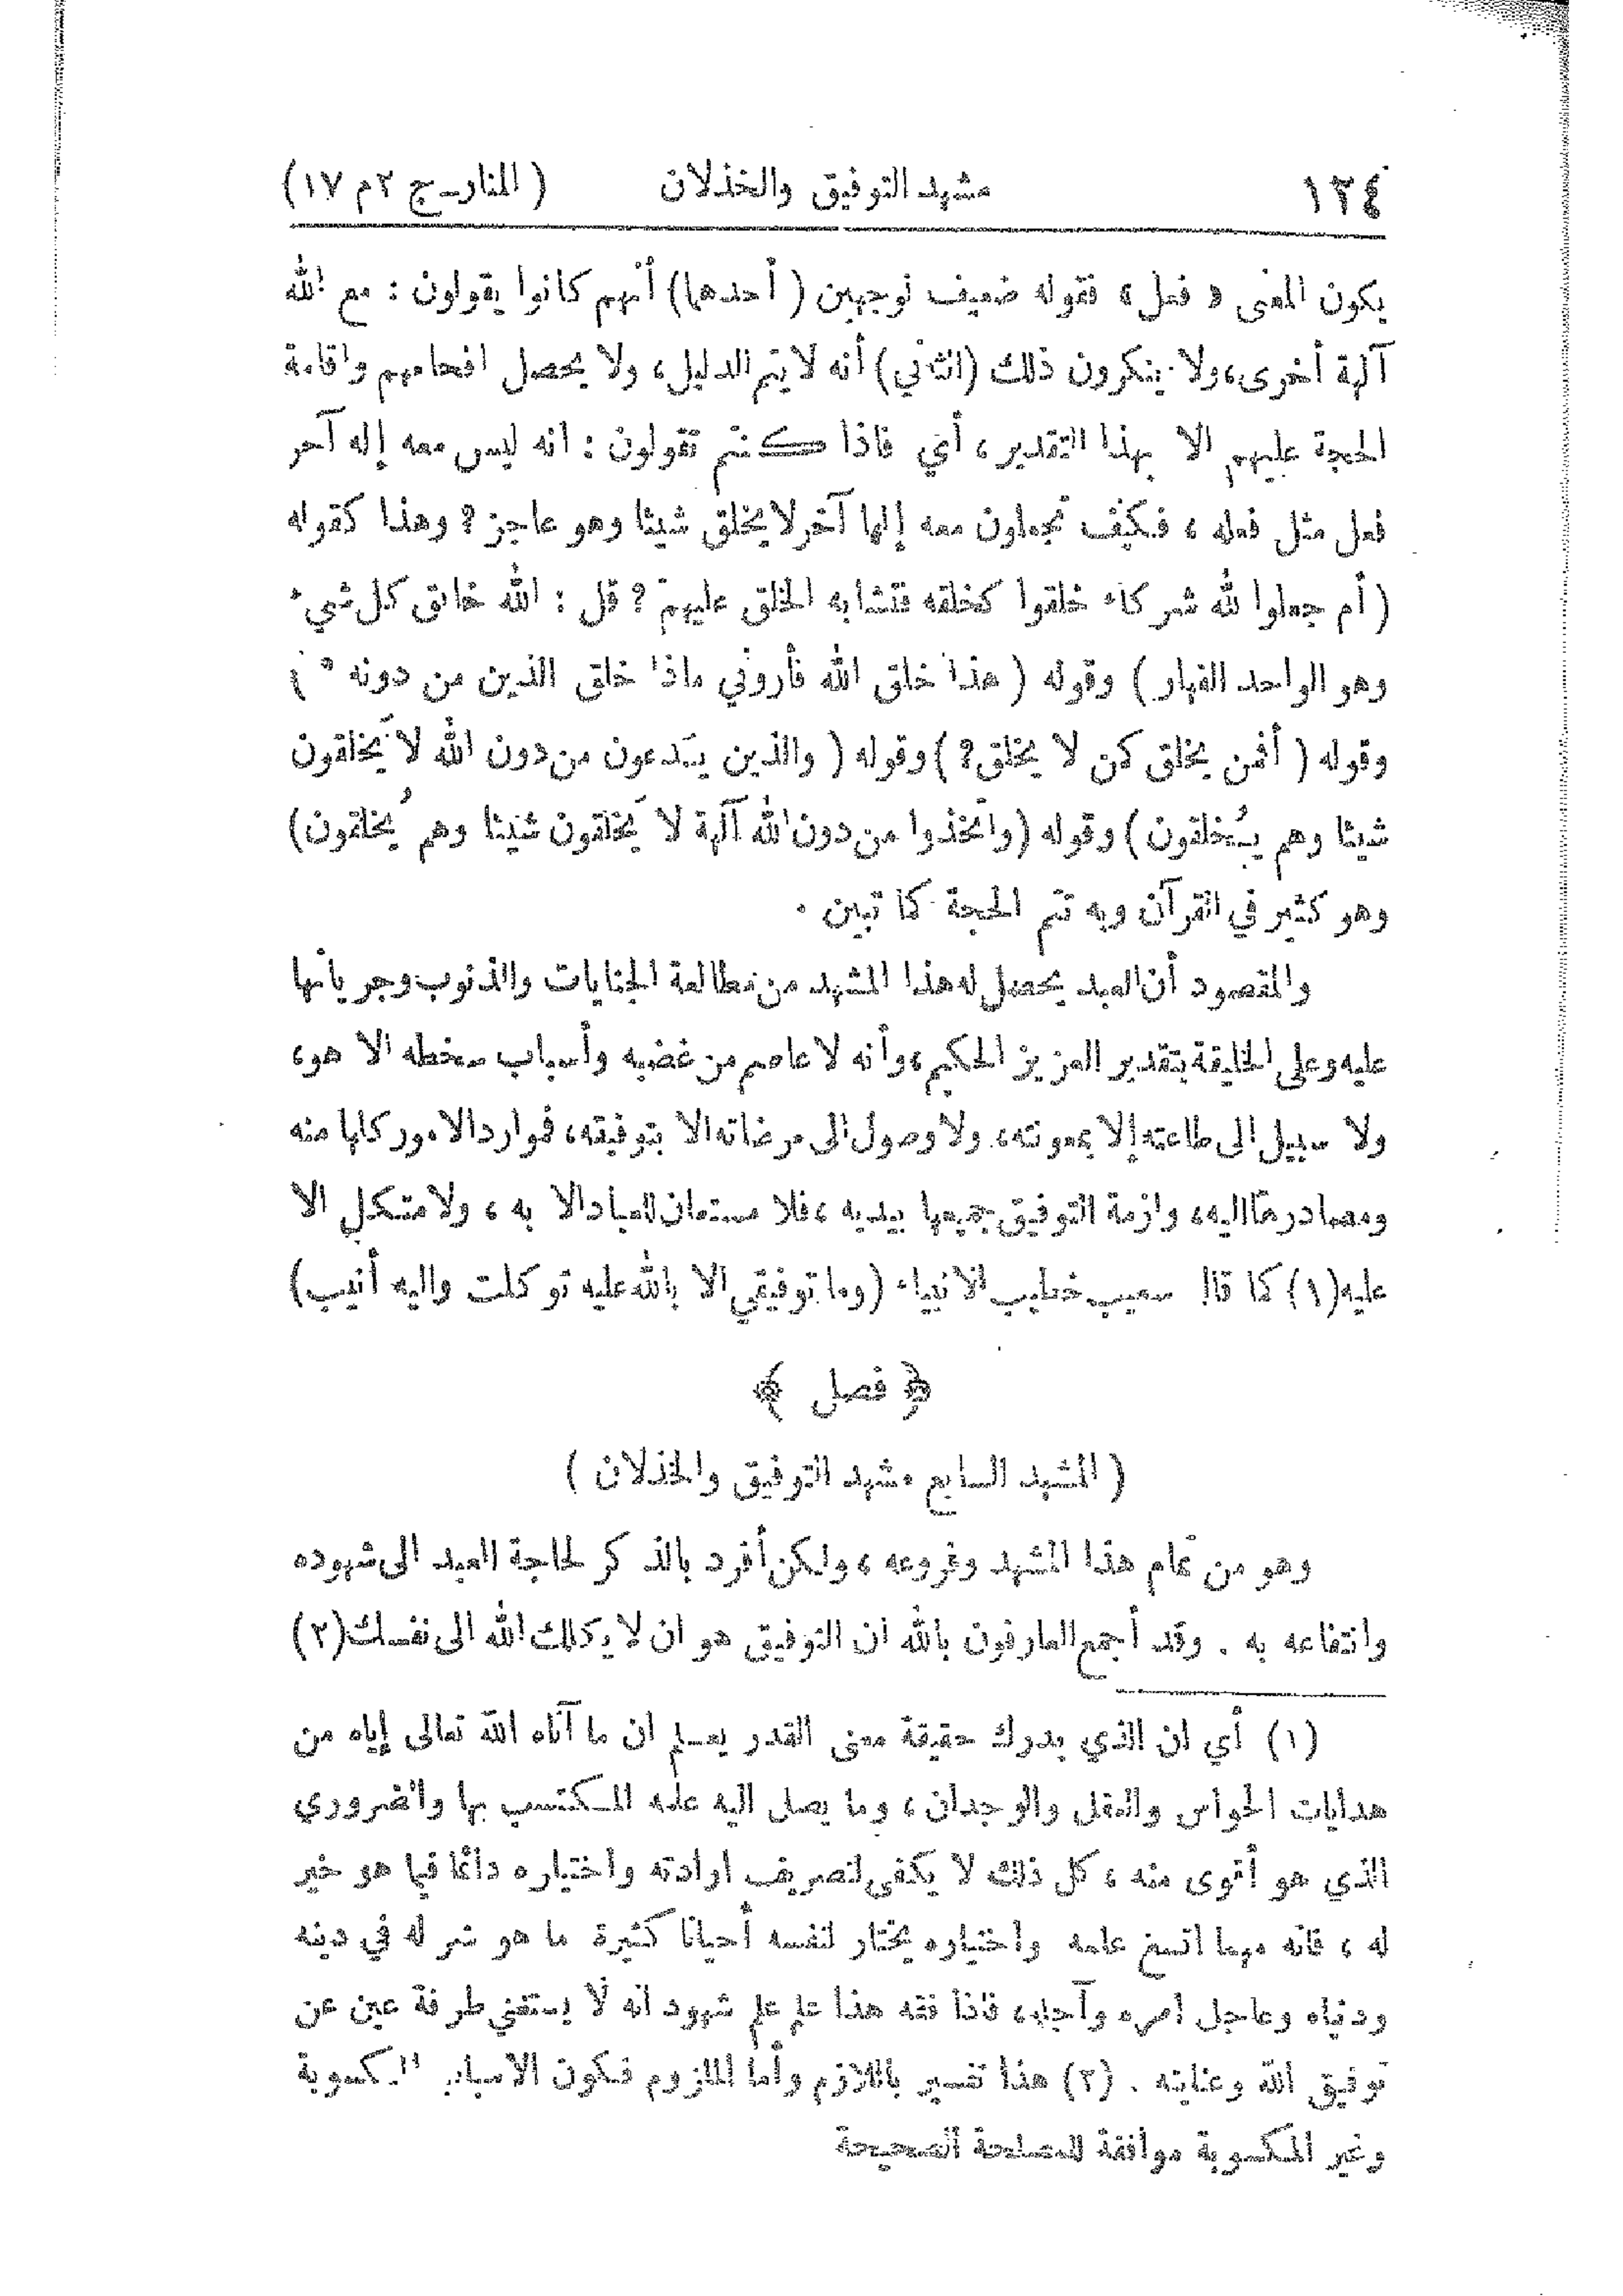 ١٢٤ مشهد التوفيق والخذلان ( المنار ـ ج ٢ م ١٧)
يكون المعنى « فعل » فقوله ضعيف لوجهين ( أحدها) أنهم كانوا يقولون : مع الله
آلهة أخرى، ولا ينكرون ذلك (الثاني) أنه لا يتم الدليل، ولا يحصل افحامهم واقامة
الحجة عليهم الا بهذا التقدير، أي فاذا كنتم تقولون : انه ليس معه إله آخر
فعل مثل فعله ، فكيف تجعلون معه إلها آخر لا يخلق شيئا وهو عاجز ? وهذا كقوله
( أم جعلوا لله شركاء خلقوا كخلقه فتشابه الخلق عليهم ? قل : الله خالق كل شيء
وهو الواحد القهار ) وقوله ( هذا خلق الله فأروني ماذا خلق الذين من دونه ? )
وقوله ( أفمن يخلق كمن لا يخلق ? ) وقوله ( والذين يَدعون من دون الله لا يَخلقون
شيئا وهم يُخلقون ) وقوله (واتخذوا من دون الله آلهة لا يَخلقون شيئا وهم يُخلقون)
وهو كثير في القرآن وبه تتم الحجة كما تبين .
والمقصود أن العبد يحصل له هذا المشهد من مطالعة الجنايات والذنوب وجريانها
عليه وعلى الخليقة بتقدير العزيز الحكيم، وأنه لا عاصم من غضبه وأسباب سخطه الا هو،
ولا سبيل الى طاعته إلا بمعونته، ولا وصول الى مرضاته الا بتوفيقه، فموارد الامور كلها منه
ومصادرها اليه، وازمة التوفيق جميعها بيديه ، فلا مستعان للعباد الا به ، ولا متكل الا
عليه (١) كما قال شعيب خطيب الانبياء (وما توفيقي الا بالله عليه توكلت واليه أنيب)
﴿ فصل ﴾
( المشهد السابع مشهد التوفيق والخذلان )
وهو من تمام هذا المشهد وفروعه ، ولكن أفرد بالذكر لحاجة العبد الى شهوده
وانتفاعه به . وقد أجمع العارفون بالله ان التوفيق هو ان لا يكلك الله الى نفسك (٢)
(١) أي ان الذي يدرك حقيقة معنى القدر يعلم ان ما آتاه الله تعالى إياه من
هدايات الحواس والعقل والوجدان ، وما يصل اليه علمه المكتسب بها والضروري
الذي هو أقوى منه ، كل ذلك لا يكفي لتصريف ارادته واختياره دائما فيما هو خير
له ، فانه مهما اتسع علمه واختياره يختار لنفسه أحيانا كثيرة ما هو شر له في دينه
ودنياه وعاجل امره وآجله، فاذا فقه هذا علم علم شهود انه لا يستغني طرفة عين عن
توفيق الله وعنايته . (٢) هذا تفسير باللازم وأما الملزوم فكون الاسباب المكسوبة
وغير المكسوبة موافقة للمصلحة الصحيحة